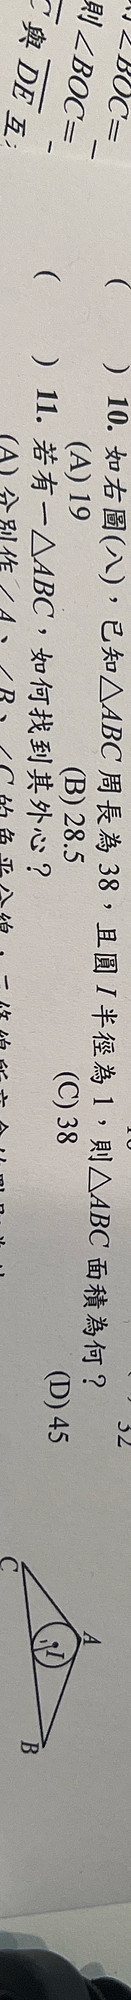 則∠BOC=
與 DE 互
( ) 10. 如右圖(八)，已知△ABC 周長為 38，且圓 I 半徑為 1，則△ABC 面積為何？
(A) 19 (B) 28.5 (C) 38 (D) 45
A
B
C
I
1
( ) 11. 若有一△ABC，如何找到其外心？
(A) 分別作∠A、∠B、∠C 的角平分線，